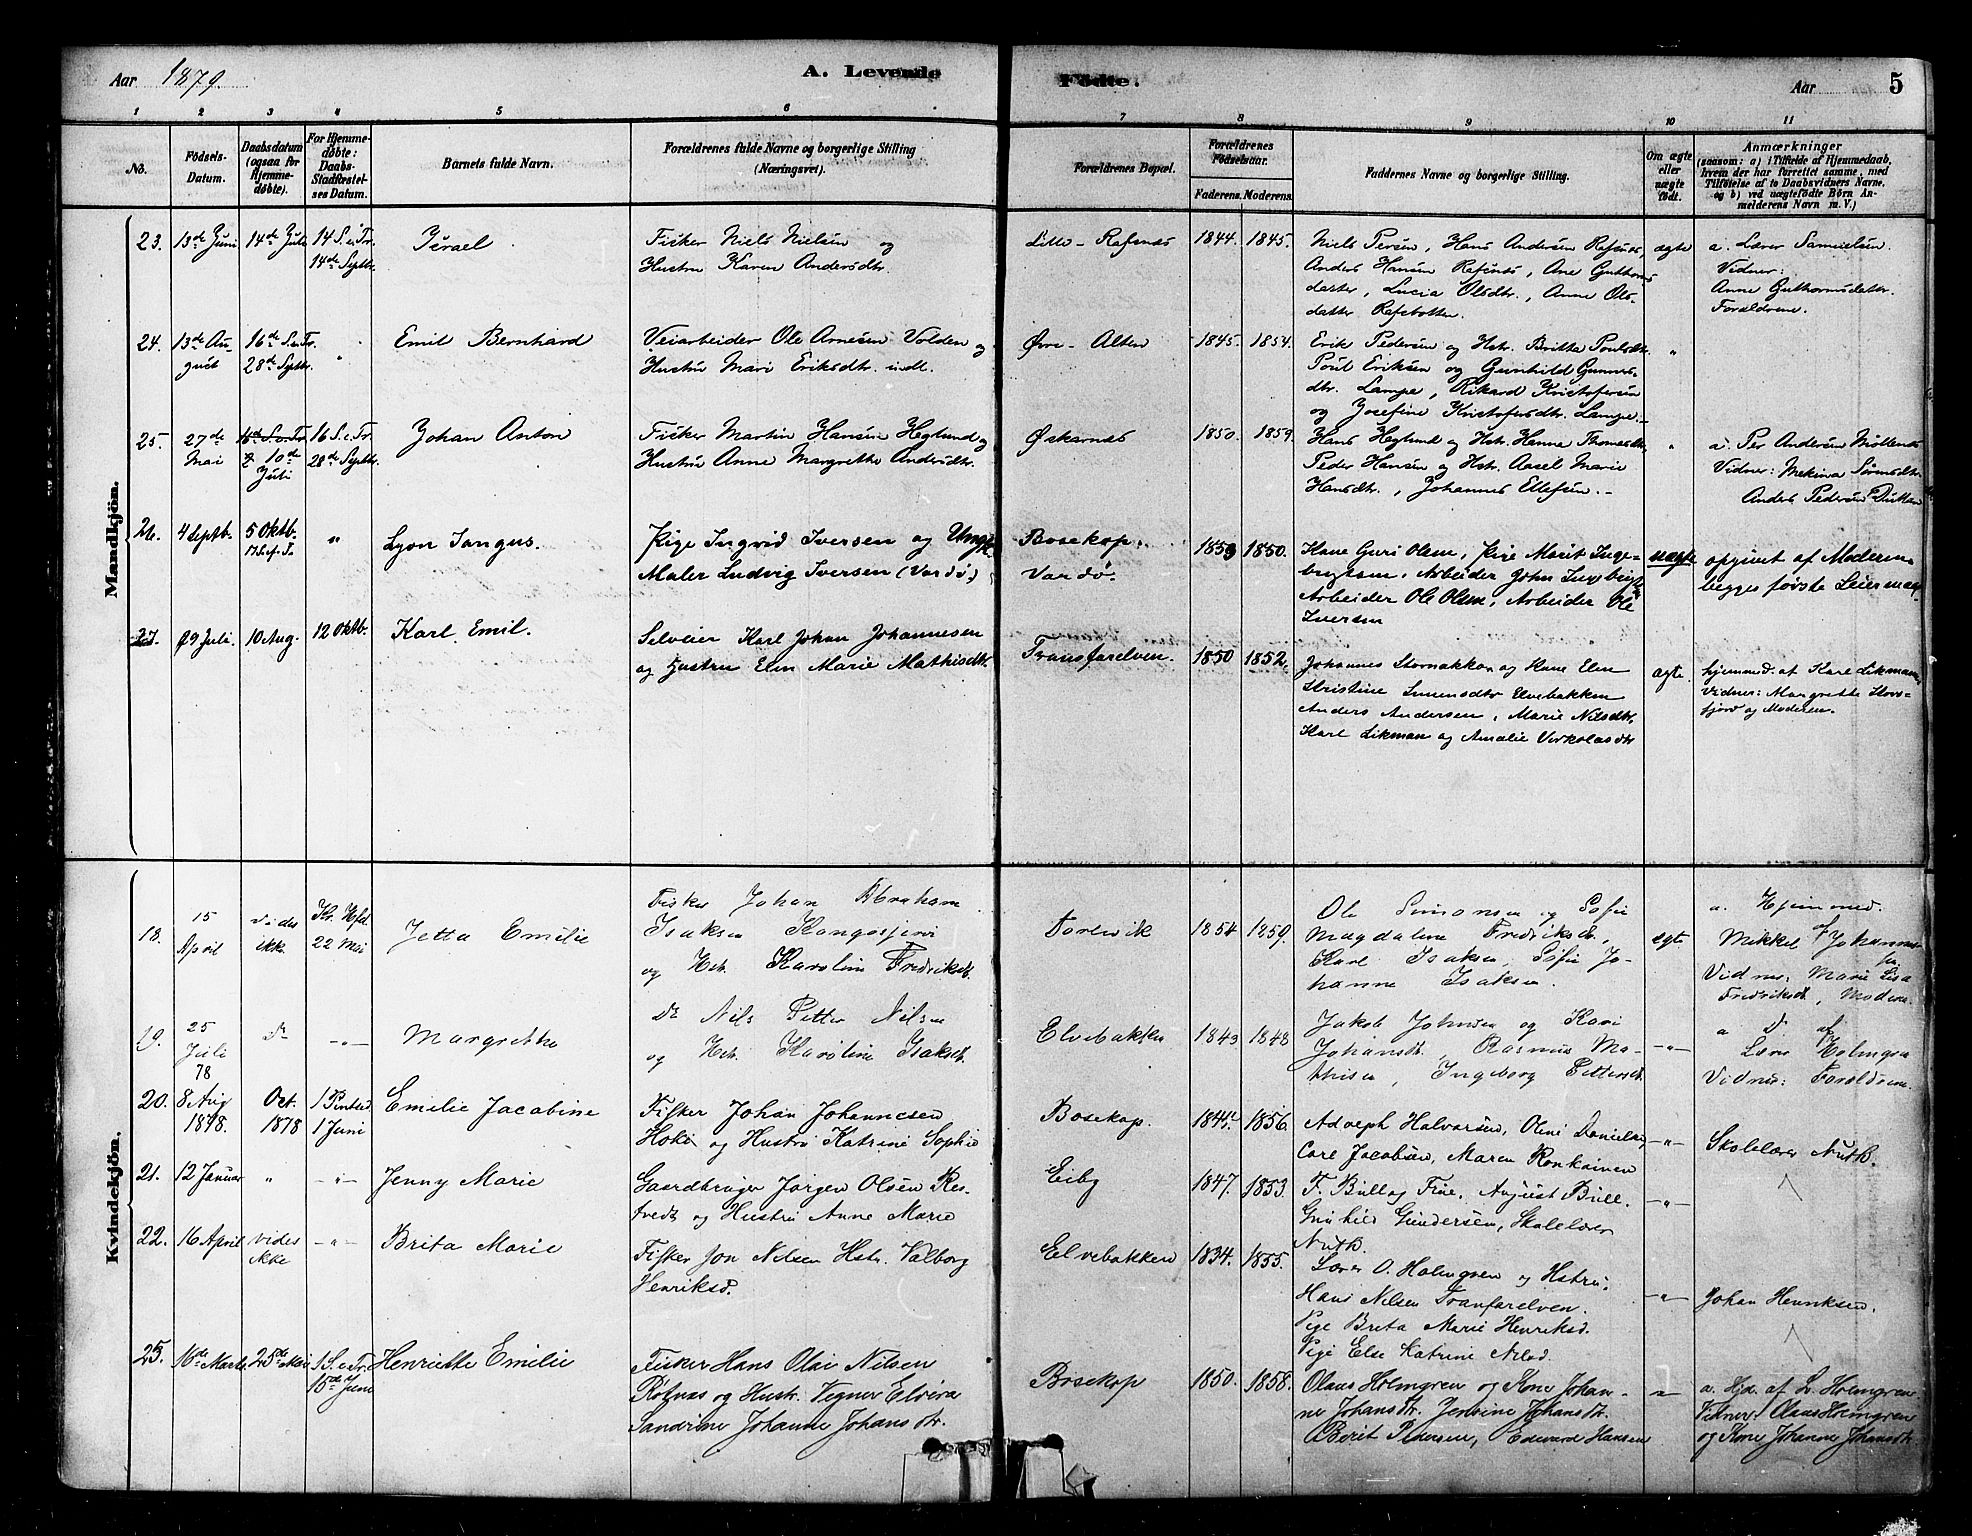 Aar 1879.
A. Levende
Fødte.
Aar
5
1 2 3 4 5 6 7 8 9 10 11
No.
Fødsels-
Datum.
Daabsdatum
(ogsaa for
Hjemme-
døbte).
For Hjemme-
døbte:
Daabs-
Stadfæstel-
ses Datum.
Barnets fulde Navn.
Forældrenes fulde Navne og borgerlige Stilling
(Næringsvei).
Forældrenes Bopæl.
Forældrenes
Fødselsaar.
Faderens. Moderens.
Faddernes Navne og borgerlige Stilling.
Om ægte
eller
uægte
født.
Anmærkninger
(saasom: a) i Tilfælde af Hjemmedaab,
hvem der har forrettet samme, med
Tilføielse af to Daabsvidners Navne,
og b) ved uægtefødte Børn An-
melderens Navn m. V.)
Mandkjön.
23. 13de Juni 14de Juli 14 S. e. Tr.
14de Septbr.
Israel
Fisker Niels Nielsen og
Hustru Karen Andersdtr.
Lille-Rafsnes 1844. 1845.
Niels Persen, Hans Andersen Rafsnes,
Anders Hansen Rafsnes, Ane Guthorms
datter, Lucia Olsdtr., Anne Ols-
datter Rafsbotten.
ægte
a. Lærer Samuelsen.
Vidner:
Anne Guthormsdattr.
Forældrene.
24. 13de Au-
gust
16de S. e. Tr.
28de Septbr.
"
Emil Bernhard
Veiarbeider Ole Arnesen Volden og
Hustru Mari Eriksdtr. indl.
Øvre-Alten 1845. 1854.
Erik Pedersen og Hstr. Britta Poulsdtr.
Poul Eriksen og Gunhild Gunners-
dtr. Lampe, Rikard Kristofersen
og Josefine Kristofersdtr. Lampe.
"
25. 27de
Mai
16de S. e. Tr.
10de
Juli
16 S. e. Tr.
28de Septbr.
Johan Anton
Fisker Martin Hansen Heglund og
Hustru Anne Margrethe Andersdtr.
Øskarnes 1850. 1859.
Hans Heglund og Hstr. Hanna Thomasdtr,
Peder Hansen og Hstr. Aasel Marie
Hansdtr., Johannes Ellefsen.
"
a. Per Andersen Møllenes
Vidner: Mekina Sørensdtr.
Anders Pedersen Dutten
26. 4 Septb. 5 Oktb.
17 S. ef. Tr.
"
Lyon Jangus.
Pige Ingrid Iversen og Ungk.
Maler Ludvig Iversen (Vardø)
Bosekop.
Vardø.
1859 1850.
Kone Guri Olsen, Pige Marit Inge-
brigtsen, Arbeider John Ingebrigtsen
Arbeider Ole Olsen, Arbeider Ole
Iversen
uægte
opgivet af Moderen
begges første Leiermaal.
27. 29 Juli. 10 Aug. 12 Oktb.
Karl Emil.
Selveier Karl Johan Johannesen
og Hustru Elen Marie Mathisdtr.
Transfarelven. 1850 1852.
Johannes Stornakka og Kone Elen
Kristine Simensdtr Elvebakken
Anders Andersen, Marie Nilsdtr.
Karl Likman og Amalie Virkolasdtr
ægte.
hjemmed. af Karl Likman.
Vidner: Margrethe Stor-
fjord og Moderen.
Kvindekjön.
18. 15
April
vides
ikke.
Kr. Hfd.
22 Mai
Jetta Emilie
Fisker Johan Abraham
Isaksen Kangosjervi
og Hstr. Karoline Fredriksdt.
Torvvik 1854 1859.
Ole Simonsen og Sofie
Magdalene Fredriksdt,
Karl Isaksen, Sofie Jo-
hanne Isaksen.
ægte
a. Hjemmed.
af
Mikkel Johannes-
sen
Vidner: Marie Lisa
Fredriksdt, Moderen.
19. 25
Juli
78
Do -"-
Margrethe
Do Nils Petter Nilsen
og Hstr. Karoline Isaksdt.
Elvebakken 1843 1848
Jakob Johnsen og Kari
Johansdt, Rasmus Ma-
thisen, Ingeborg Pettersdt.
-"-
a Do af
Lærer Holmgren
Vidner: Forældrene.
20. 8 Aug
1878.
Oct.
1878
1 Pintsed.
1 Juni
Emilie Jacobine
Fisker Johan Johannesen
Hoka og Hustru Katrine Sophie
Bosekop. 1844. 1856.
Adolph Halvorsen, Oline Danielsen,
Carl Jacobsen, Maren Ronkainen
-"-
Skolelærer Nuth.
21. 12 Januar " -"-
Jenny Marie
Gaardbruger Jørgen Olsen Res-
tvedt og Hustru Anne Marie
Eiby 1847. 1853.
F. Bull og Frue, August Bull.
Gunhild Gundersen, Skolelærer
Nuth.
-"-
22. 16 April vides
ikke
-"-
Brita Marie
Fisker Jon Nilsen Hstr. Valborg
Henriksd.
Elvebakken 1834. 1855.
Lærer O. Holmgren og Hstru.
Hans Nilsen Tranfarelven.
Pige Brita Marie Henriksd.
Pige Else Katrine Nilsd.
-"-
Johan Henriksen.
23. 16de Marts 25de Mai 1 S. e. Tr.
15de Juni
Henriette Emilie
Fisker Hans Olai Nilsen
Røtnæs og Hustr. Vegner Elvira
Sandrine Johanne Johansdtr.
Bosekop 1850. 1858.
Olaus Holmgren og Kone Johan-
ne Johansdtr. Jensine Johansdtr.
Berit Pedersen, Edevard Hansen
-"-
a. Hjd. af L. Holmgren.
Vidner: Olaus Holmgren
og Kone Johanne Johansdtr.